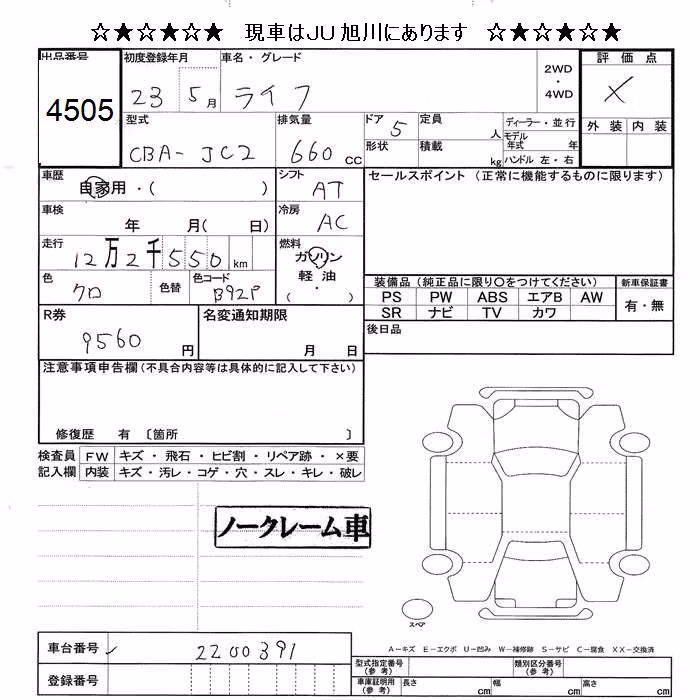 ☆★☆★☆★ 現車はJU旭川にあります ☆★☆★☆★
出品番号 初度登録年月 車名・グレード 評価点
4505 23 5月 ライフ 2WD・4WD X
型式 排気量 ドア 5 定員 人 ディーラー・並行 外装 内装
CBA-JC2 660cc 形状 積載 kg モデル年式 年 ハンドル 左・右
車歴 自家用・( ) シフト AT セールスポイント (正常に機能するものに限ります)
車検 年 月( 日) 冷房 AC
走行 12万2千550km 燃料 ガソリン・軽油 ( )
色 クロ 色替 色コード B92P 装備品 (純正品に限り○をつけてください) 新車保証書
PS PW ABS エアB AW 有・無
SR ナビ TV カワ
R券 9560円 名変通知期限 月 日 後日品
注意事項申告欄 (不具合内容等は具体的に記入して下さい)
修復歴 有 〔箇所 〕
検査員 FW キズ・飛石・ヒビ割・リペア跡・×要
記入欄 内装 キズ・汚レ・コゲ・穴・スレ・キレ・破レ
ノークレーム車
スペア
A-キズ E-エクボ U-凹み W-補修跡 S-サビ C-腐食 XX-交換済
車台番号 2200391 型式指定番号 (参考) 類別区分番号 (参考)
登録番号 車庫証明用 (参考) 長さ cm 幅 cm 高さ cm